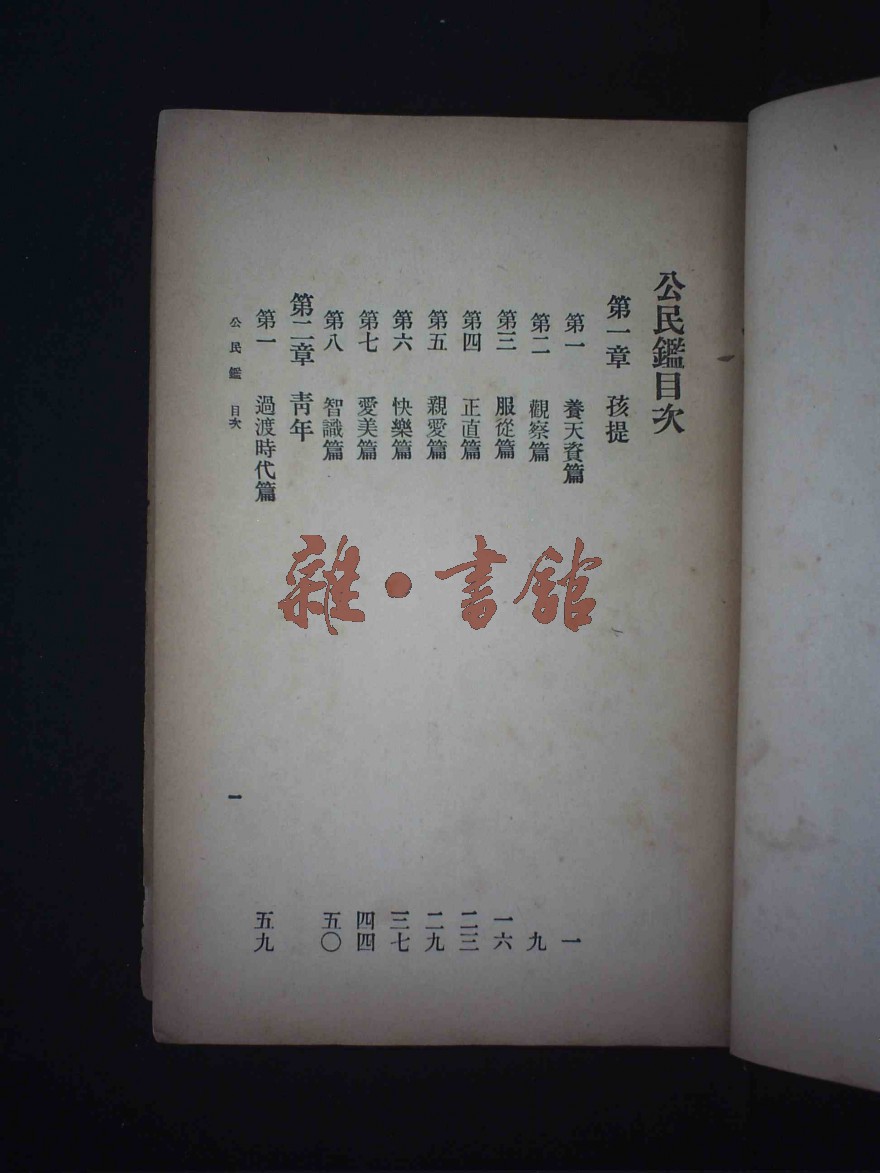 公民鑑目次
第一章 孩提
第一 養天資篇 一
第二 觀察篇 九
第三 服從篇 一六
第四 正直篇 二三
第五 親愛篇 二九
第六 快樂篇 三七
第七 愛美篇 四四
第八 智識篇 五〇
第二章 靑年
第一 過渡時代篇 五九
公民鑑 目次 一
雜·書館